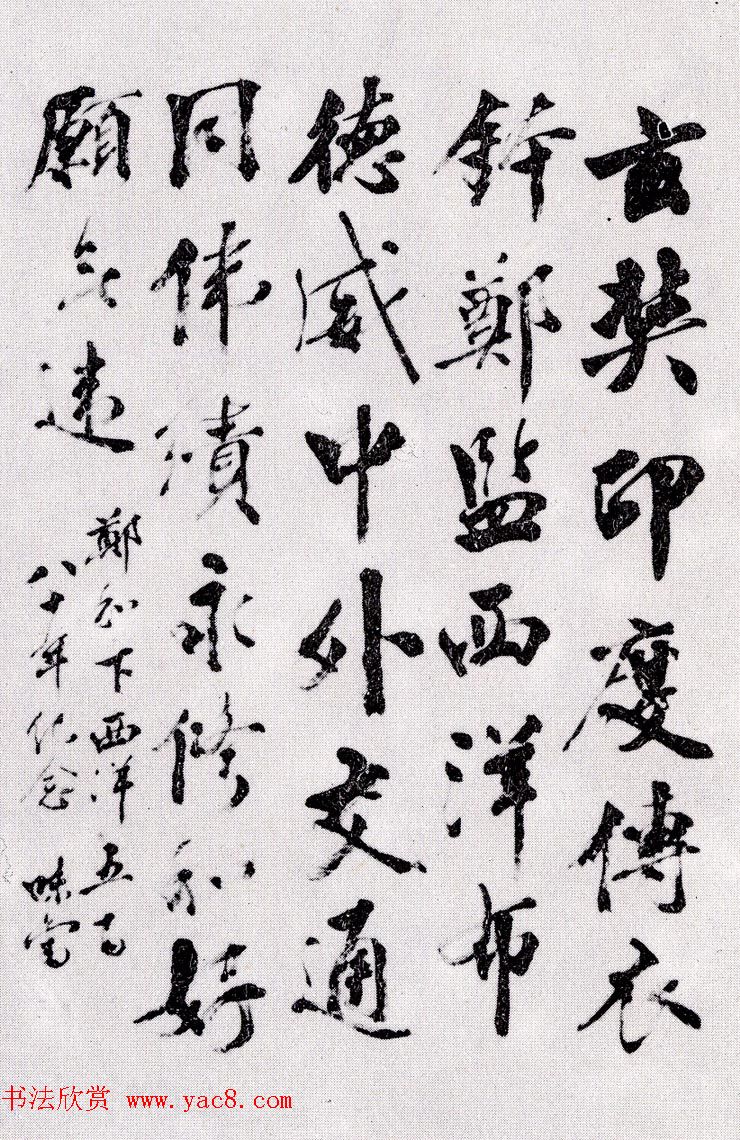 玄奘印度傳衣
鉢鄭監西洋布
德威中外交通
同偉績永修和好
願無違
鄭和下西洋五百
八十年紀念
书法欣赏 www.yac8.com